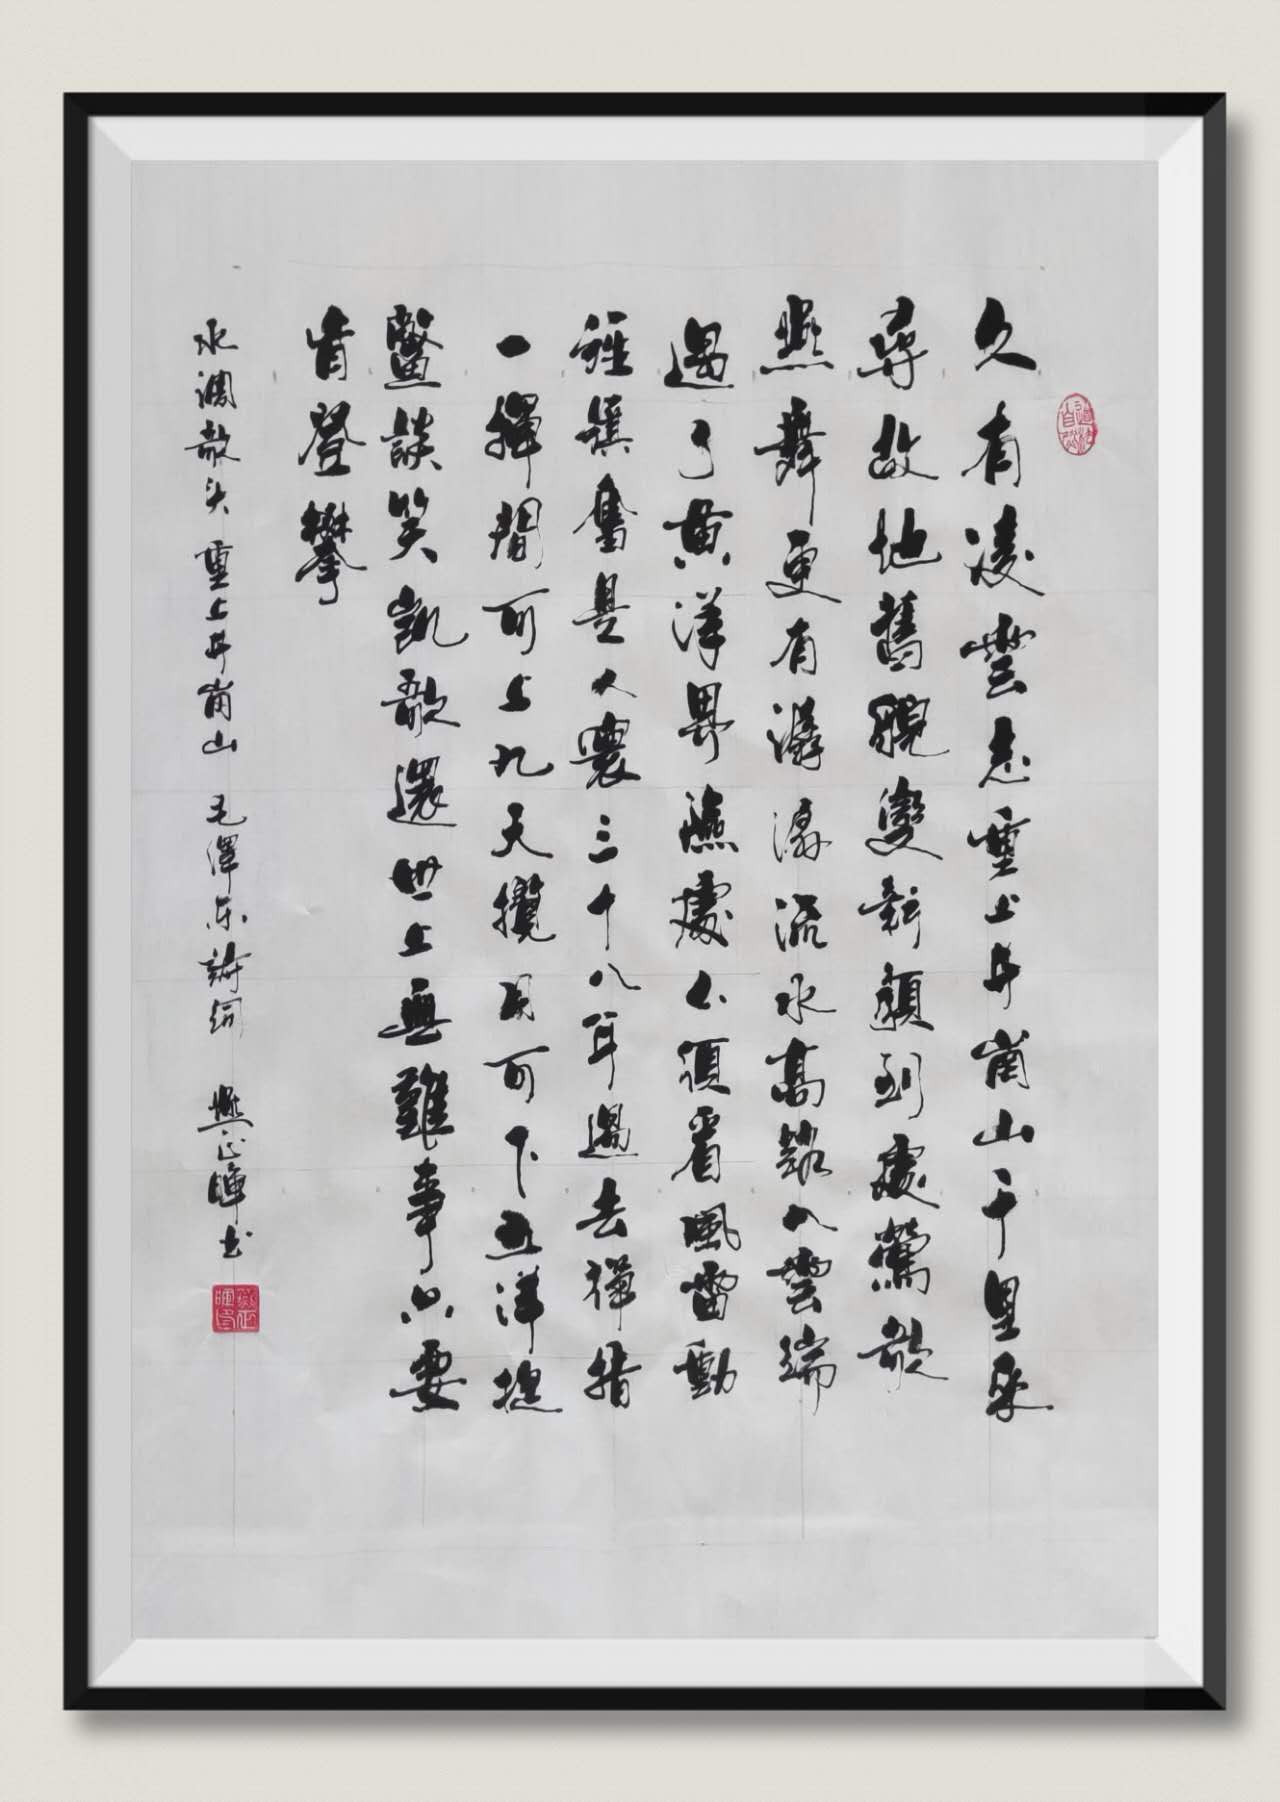 道法自然
久有凌雲志重上井崗山千里來
尋故地舊貌變新顏到處鶯歌
燕舞更有潺潺流水高路入雲端
過了黃洋界險處不須看風雷動
旌旗奮是人寰三十八年過去彈指
一揮間可上九天攬月可下五洋捉
鱉談笑凱歌還世上無難事只要
肯登攀
水調歌头 重上井崗山 毛澤东詩詞 燕正暉书